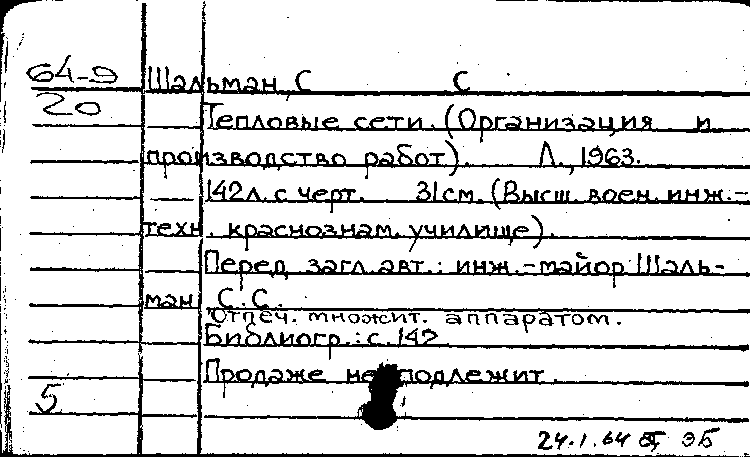 64-9 Шальман, С С
20
Тепловые сети. (Организация и
производство работ). Л., 1963.
142л. с черт. 31см. (Высш. воен. инж.-
техн. краснознам. училище).
Перед загл. авт.: инж.-майор Шаль-
ман С.С.
Отпеч. множит. аппаратом.
Библиогр.: с. 142
Продаже не подлежит.
5
24.1.64 ЭБ